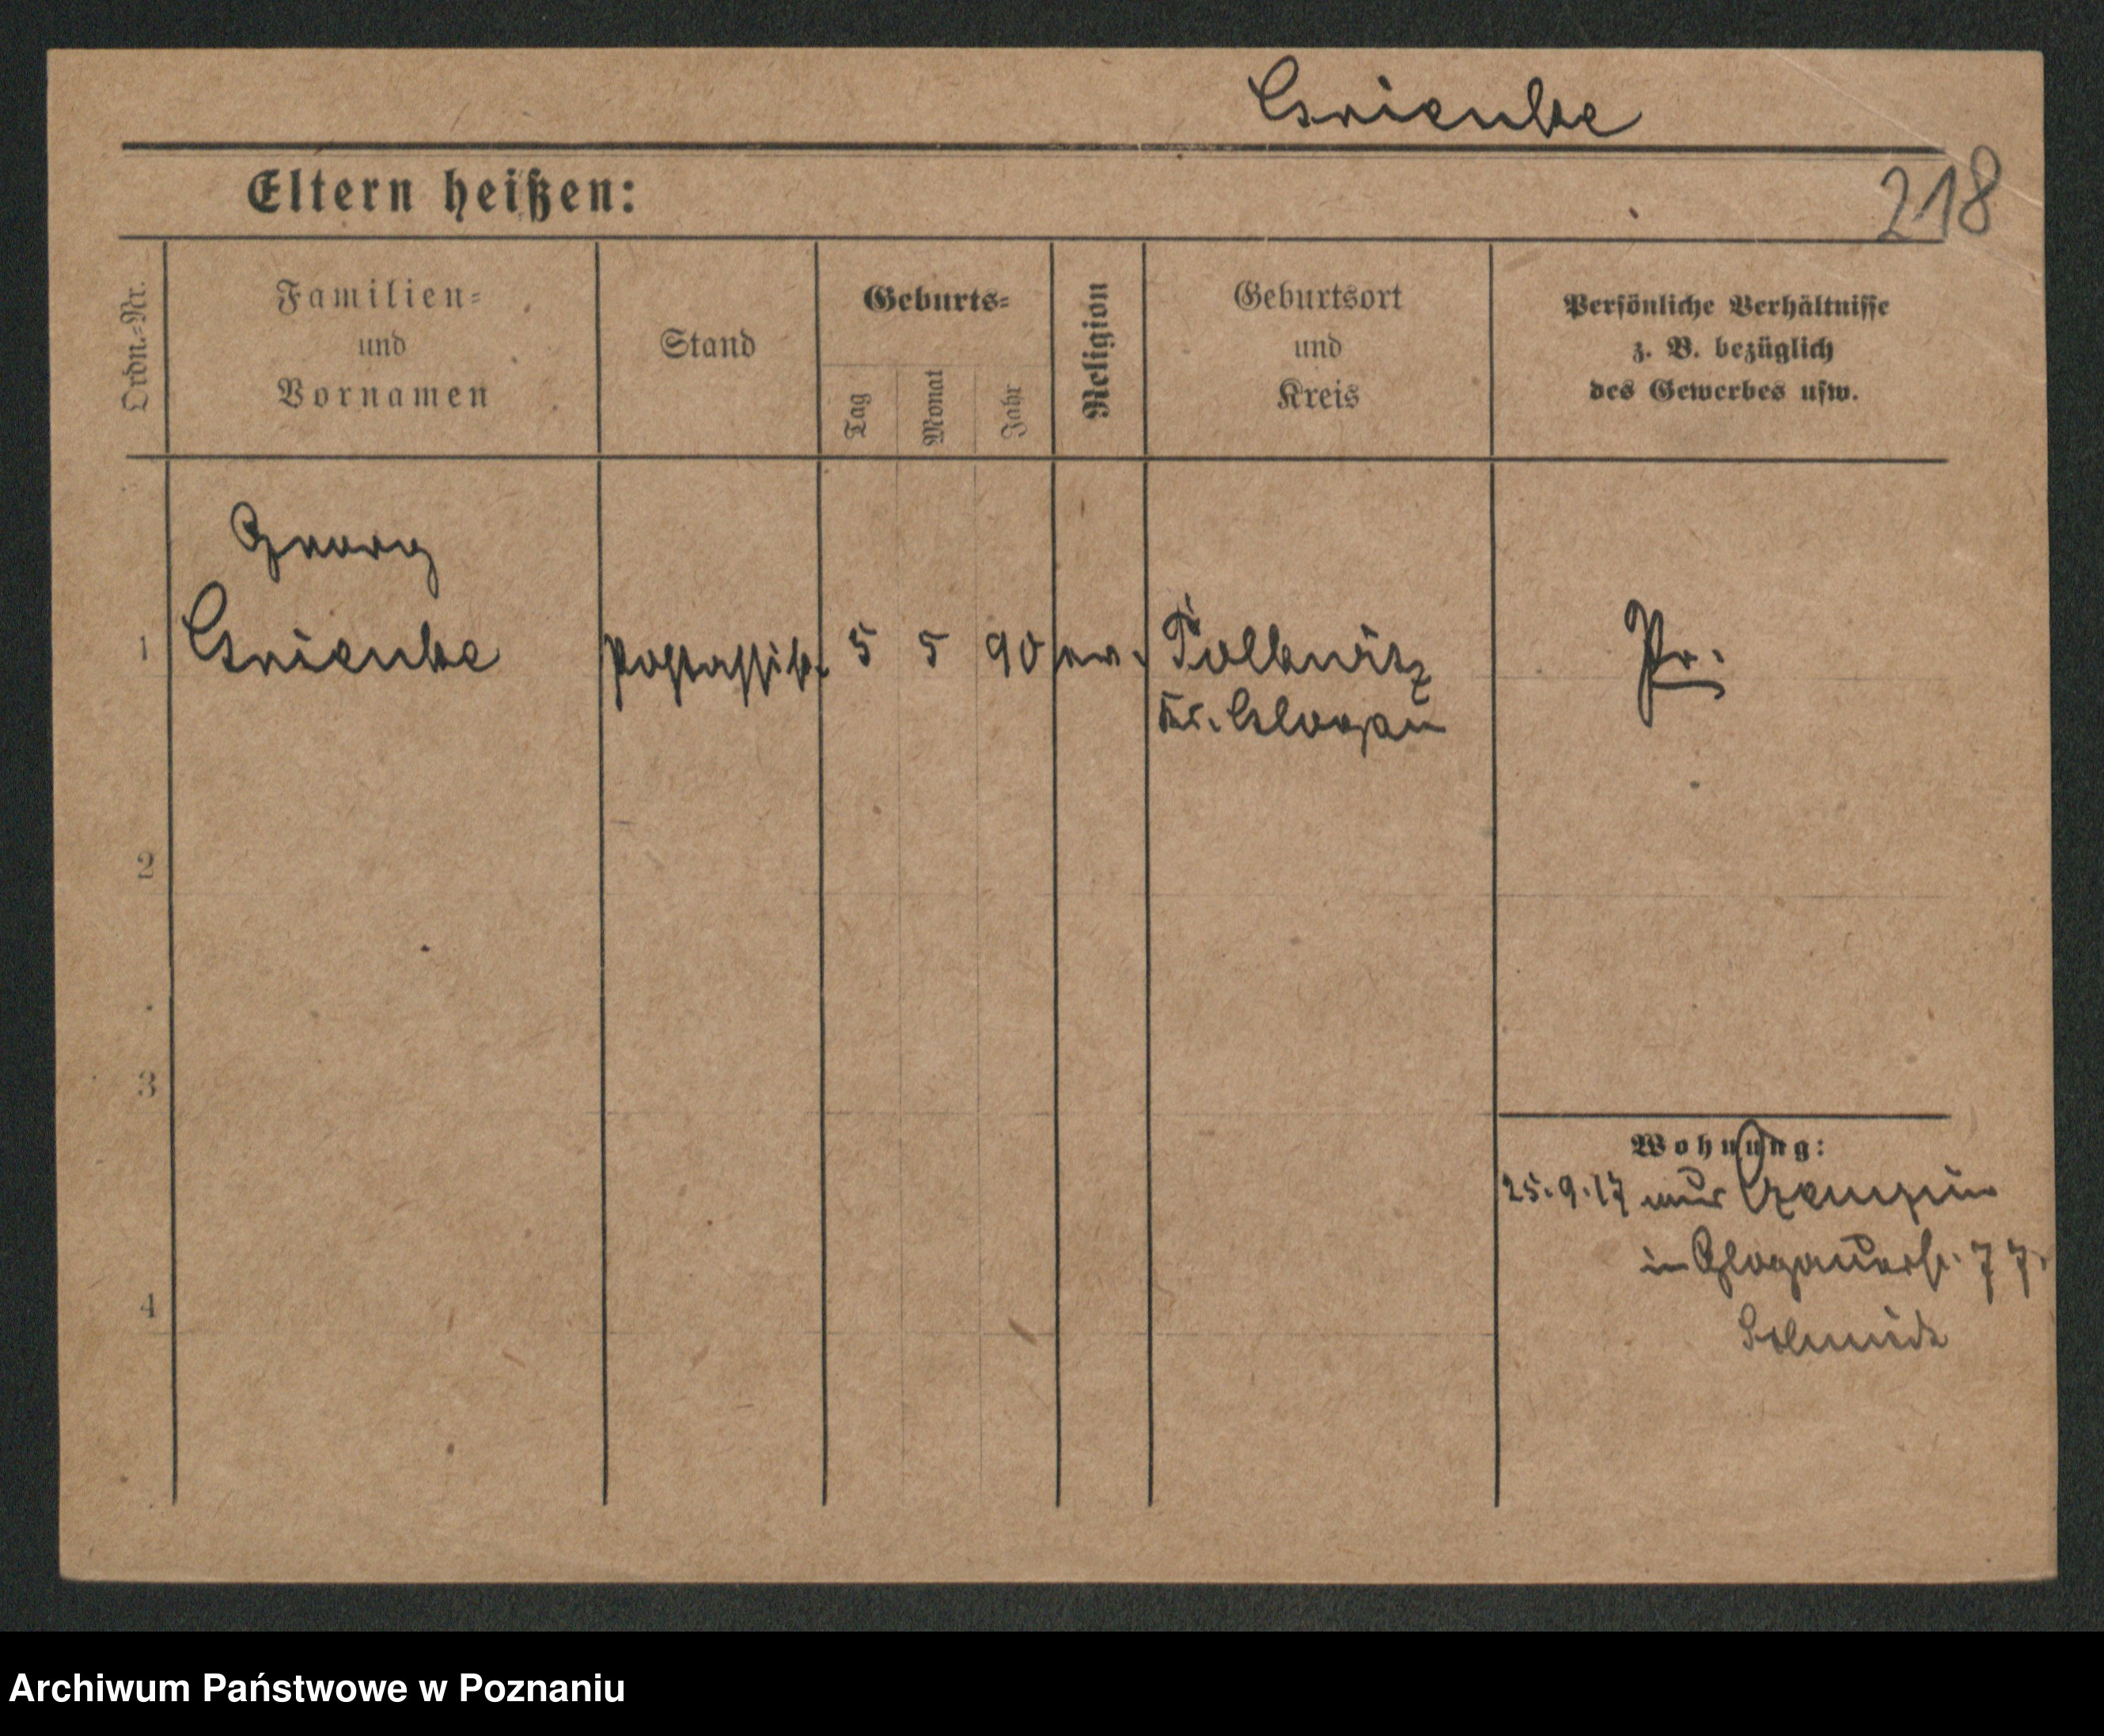 Grienke
218
Eltern heißen:
Ordn.-Nr.
Familien-
und
Vornamen
Stand
Geburts-
Tag
Monat
Jahr
Religion
Geburtsort
und
Kreis
Persönliche Verhältnisse
z. B. bezüglich
des Gewerbes usw.
Georg
1 Grienke Postassist. 5 5 90 ev. Polkwitz Pr.
Kr. Glogau
2
3
4
Wohnung:
25.9.17 aus
in Glogauerstr. 77.
Schmidt
Archiwum Państwowe w Poznaniu